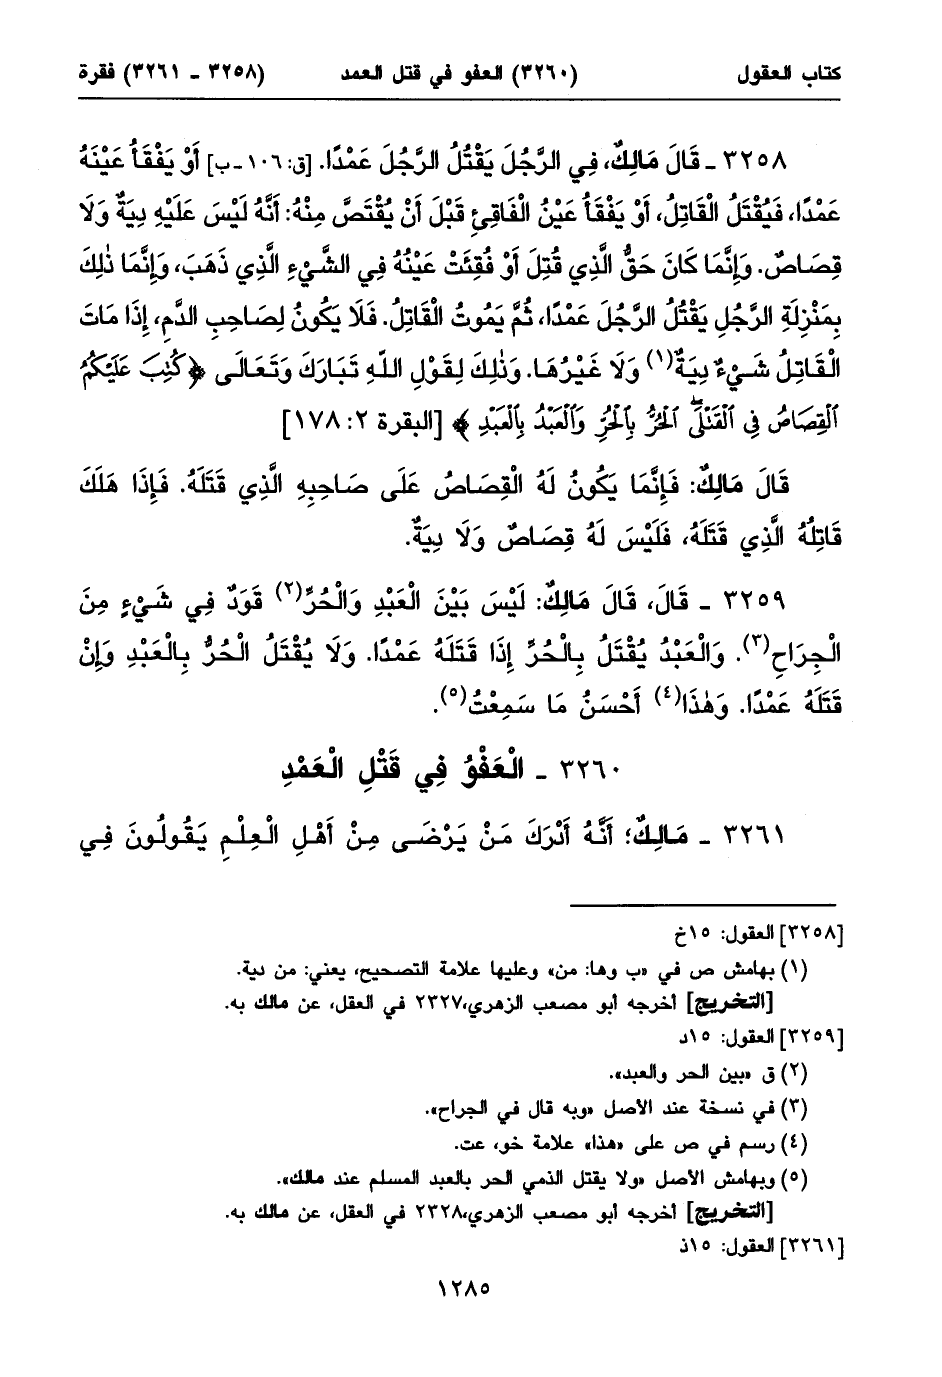 كتاب العقول (٣٢٦٠) العفو في قتل العمد (٣٢٥٨ ـ ٣٢٦١) فقرة
٣٢٥٨ ـ قَالَ مَالِكٌ، فِي الرَّجُلِ يَقْتُلُ الرَّجُلَ عَمْدًا. [ق: ١٠٦ ـ ب] أَوْ يَفْقَأُ عَيْنَهُ
عَمْدًا، فَيُقْتَلُ الْقَاتِلُ، أَوْ يَفْقَأُ عَيْنُ الْفَاقِئِ قَبْلَ أَنْ يُقْتَصَّ مِنْهُ: أَنَّهُ لَيْسَ عَلَيْهِ دِيَةٌ وَلَا
قِصَاصٌ. وَإِنَّمَا كَانَ حَقُّ الَّذِي قُتِلَ أَوْ فُقِئَتْ عَيْنُهُ فِي الشَّيْءِ الَّذِي ذَهَبَ، وَإِنَّمَا ذٰلِكَ
بِمَنْزِلَةِ الرَّجُلِ يَقْتُلُ الرَّجُلَ عَمْدًا، ثُمَّ يَمُوتُ الْقَاتِلُ. فَلَا يَكُونُ لِصَاحِبِ الدَّمِ، إِذَا مَاتَ
الْقَاتِلُ شَيْءٌ دِيَةٌ(١) وَلَا غَيْرُهَا. وَذٰلِكَ لِقَوْلِ اللّهِ تَبَارَكَ وَتَعَالَى ﴿كُتِبَ عَلَيْكُمُ
ٱلْقِصَاصُ فِى ٱلْقَتْلَىۖ ٱلْحُرُّ بِٱلْحُرِّ وَٱلْعَبْدُ بِٱلْعَبْدِ﴾ [البقرة ٢: ١٧٨]
قَالَ مَالِكٌ: فَإِنَّمَا يَكُونُ لَهُ الْقِصَاصُ عَلَى صَاحِبِهِ الَّذِي قَتَلَهُ. فَإِذَا هَلَكَ
قَاتِلُهُ الَّذِي قَتَلَهُ، فَلَيْسَ لَهُ قِصَاصٌ وَلَا دِيَةٌ.
٣٢٥٩ ـ قَالَ، قَالَ مَالِكٌ: لَيْسَ بَيْنَ الْعَبْدِ وَالْحُرِّ(٢) قَوَدٌ فِي شَيْءٍ مِنَ
الْجِرَاحِ(٣). وَالْعَبْدُ يُقْتَلُ بِالْحُرِّ إِذَا قَتَلَهُ عَمْدًا. وَلَا يُقْتَلُ الْحُرُّ بِالْعَبْدِ وَإِنْ
قَتَلَهُ عَمْدًا. وَهٰذَا(٤) أَحْسَنُ مَا سَمِعْتُ(٥).
٣٢٦٠ ـ الْعَفْوُ فِي قَتْلِ الْعَمْدِ
٣٢٦١ ـ مَالِكٌ؛ أَنَّهُ أَدْرَكَ مَنْ يَرْضَى مِنْ أَهْلِ الْعِلْمِ يَقُولُونَ فِي
[٣٢٥٨] العقول: ١٥خ
(١) بهامش ص في «ب وها: من» وعليها علامة التصحيح، يعني: من دية.
[التخريج] أخرجه أبو مصعب الزهري، ٢٣٢٧ في العقل، عن مالك به.
[٣٢٥٩] العقول: ١٥د
(٢) ق «بين الحر والعبد».
(٣) في نسخة عند الأصل «وبه قال في الجراح».
(٤) رسم في ص على «هذا» علامة خو، عت.
(٥) وبهامش الأصل «ولا يقتل الذمي الحر بالعبد المسلم عند مالك».
[التخريج] أخرجه أبو مصعب الزهري، ٢٣٢٨ في العقل، عن مالك به.
[٣٢٦١] العقول: ١٥ذ
١٢٨٥